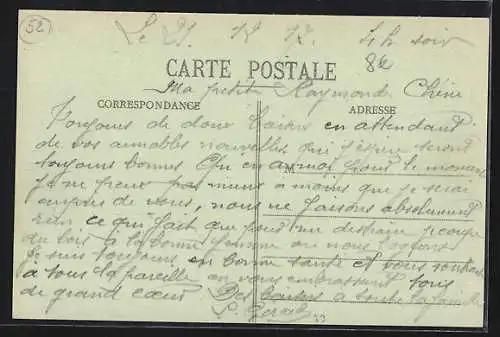 52
Le 21 12 17. 4h soir
8e
CARTE POSTALE
Ma petite Raymonde Chérie
CORRESPONDANCE ADRESSE
Toujours de doux baisers en attendant
de vos aimables nouvelles que j'espère seront
toujours bonnes en a pour le moment
M
je ne peux pas mieux à moins que je sois
auprès de vous, nous ne faisons absolument
rien ce qui fait que pour me distraire je coupe
du bois à la bonne femme où nous logeons
Je suis toujours en bonne santé et vous souhaite
à tous la pareille en vous embrassant tous
de grand cœur Des baisers à toute la famille